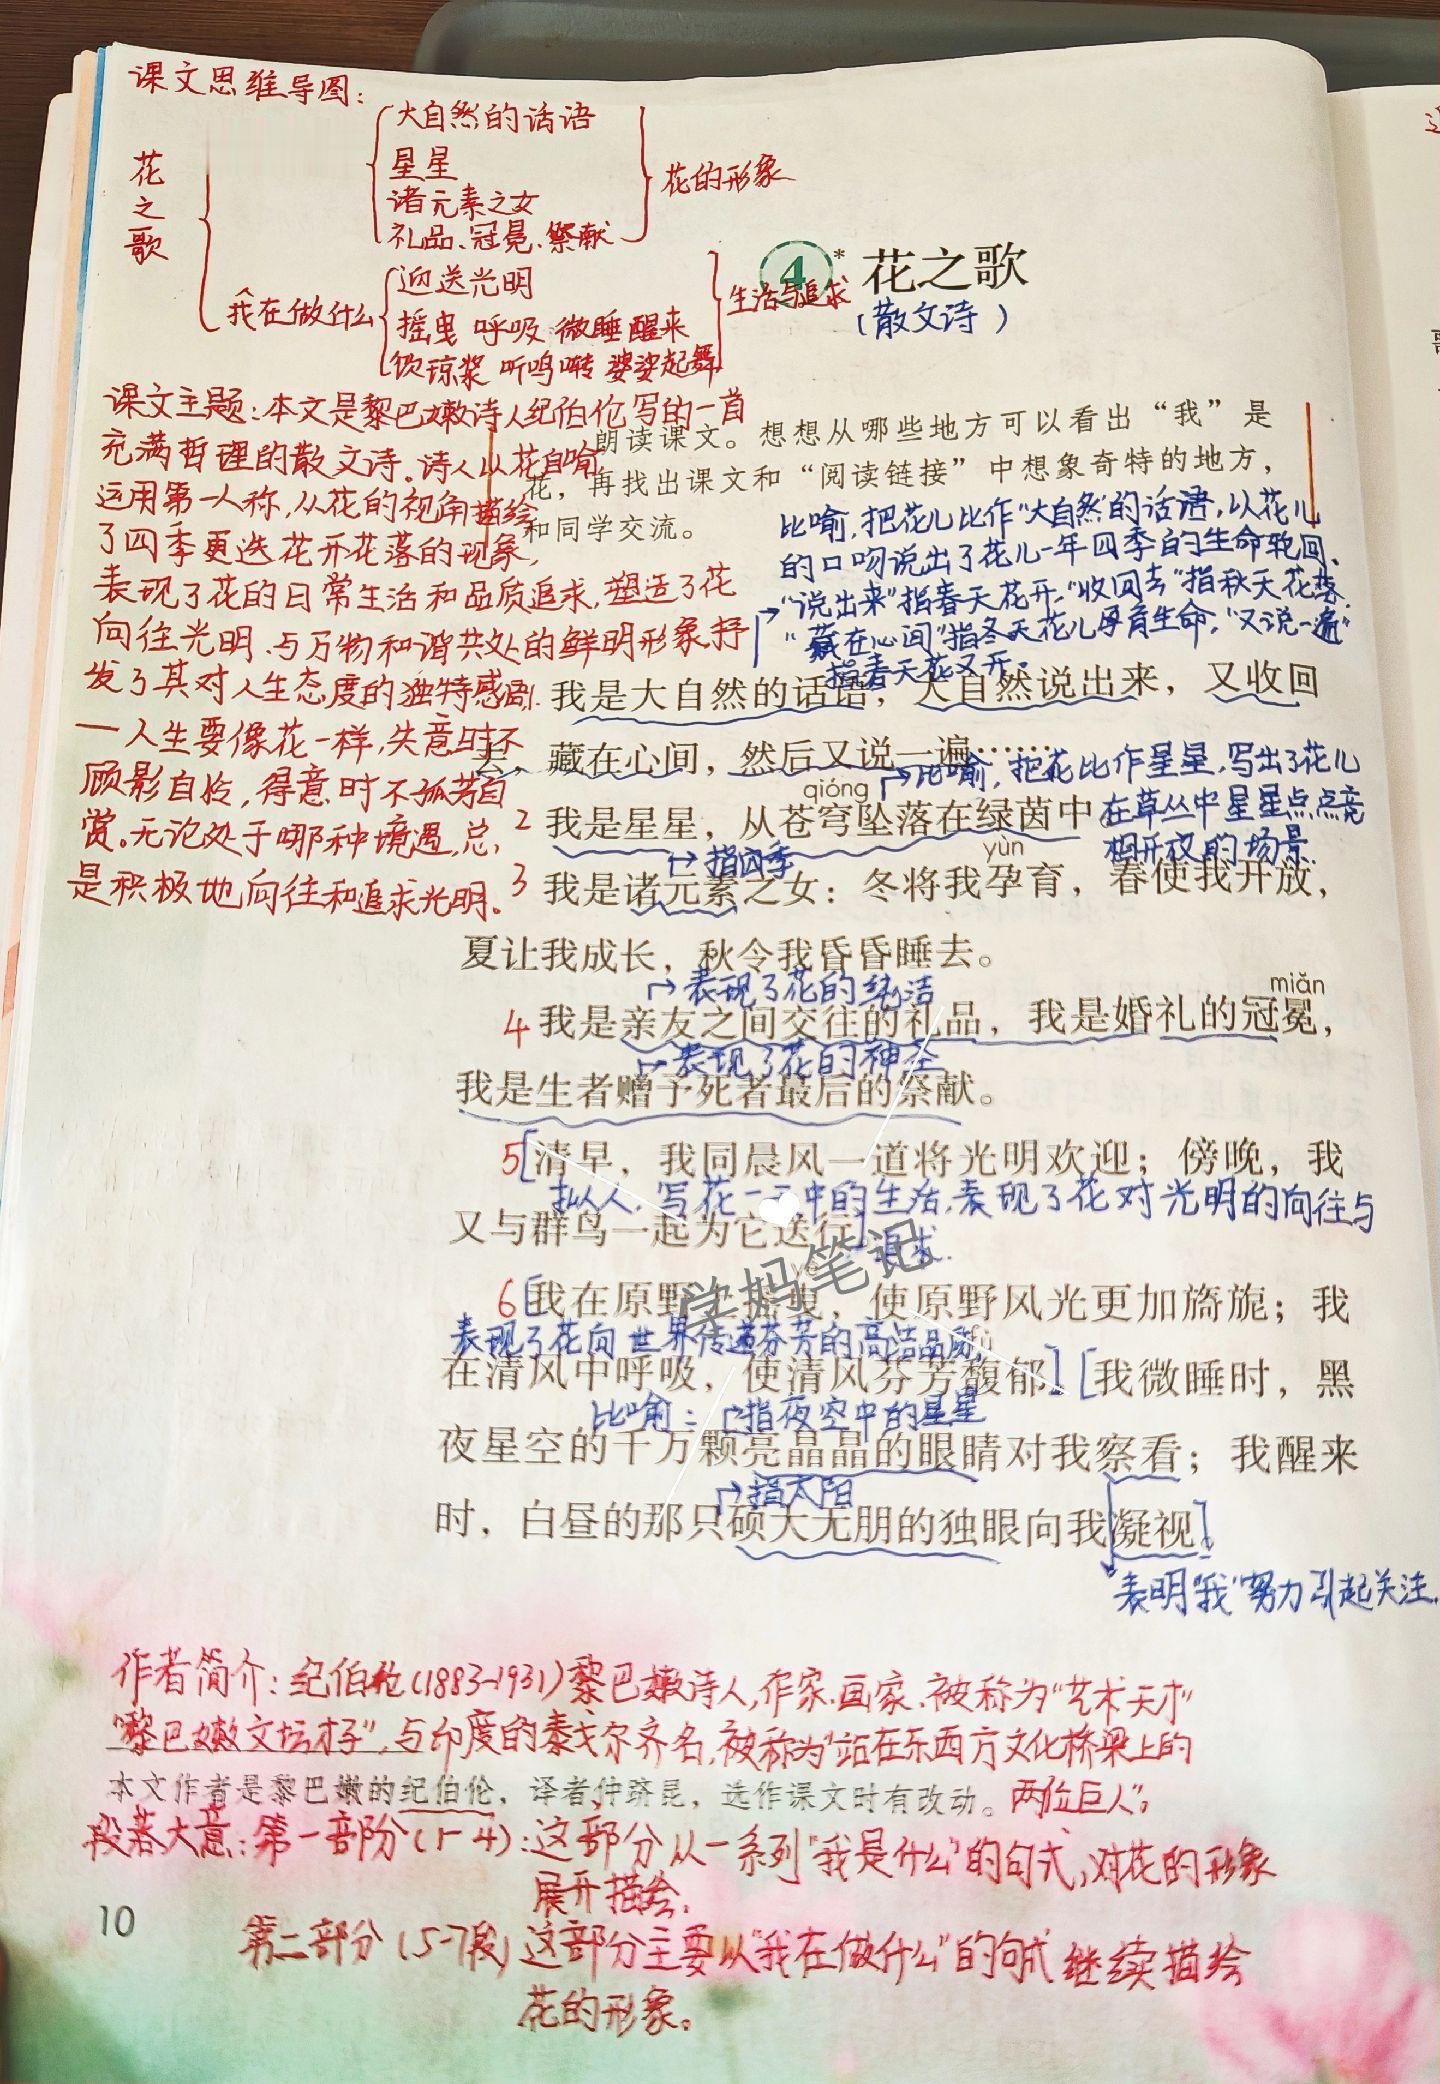 课文思维导图:
花之歌
大自然的话语
星星
诸元素之女
礼品、冠冕、祭献
花的形象
我在做什么
迎送光明
摇曳 呼吸 微睡醒来
饮琼浆 听鸣啭 婆娑起舞
生活与追求
4* 花之歌
(散文诗)
课文主题:本文是黎巴嫩诗人纪伯伦写的一首
充满哲理的散文诗。诗人以花自喻,
运用第一人称,从花的视角描绘
了四季更迭花开花落的现象,
表现了花的日常生活和品质追求,塑造了花
向往光明、与万物和谐共处的鲜明形象,抒
发了其对人生态度的独特感
—人生要像花一样,失意时不
顾影自怜,得意时不孤芳自
赏。无论处于哪种境遇,总
是积极地向往和追求光明。
朗读课文。想想从哪些地方可以看出“我”是
花,再找出课文和“阅读链接”中想象奇特的地方,
和同学交流。
比喻,把花儿比作“大自然的话语,以花儿
的口吻说出了花儿一年四季的生命轮回、
“说出来”指春天花开,“收回去”指秋天花落,
“藏在心间”指冬天花儿孕育生命,“又说一遍”
指春天花又开。
我是大自然的话语,大自然说出来,又收回
去,藏在心间,然后又说一遍……
比喻,把花比作星星,写出了花儿
在草丛中星星点点竞
相开放的场景
qióng
2 我是星星,从苍穹坠落在绿茵中
指四季
yùn
3 我是诸元素之女:冬将我孕育,春使我开放,
夏让我成长,秋令我昏昏睡去。
表现了花的纯洁
miǎn
4 我是亲友之间交往的礼品,我是婚礼的冠冕,
表现了花的神圣
我是生者赠予死者最后的祭献。
5[清早,我同晨风一道将光明欢迎;傍晚,我
拟人,写花一 中的生活,表现了花对光明的向往与
追求.
又与群鸟一起为它送行
学妈笔记
6[我在原野 摇曳,使原野风光更加旖旎;我
表现了花向世界传递芬芳的高洁品质,
在清风中呼吸,使清风芬芳馥郁][我微睡时,黑
比喻: 指夜空中的星星
夜星空的千万颗亮晶晶的眼睛对我察看;我醒来
指太阳
时,白昼的那只硕大无朋的独眼向我凝视。]
表明“我”努力引起关注.
作者简介:纪伯伦(1883-1931)黎巴嫩诗人,作家、画家、被称为“艺术天才”
“黎巴嫩文坛才子”,与印度的泰戈尔齐名,被称为“站在东西方文化桥梁上的
两位巨人”。
本文作者是黎巴嫩的纪伯伦,译者仲跻昆,选作课文时有改动。
段落大意:第一部份(1-4):这部分从一系列“我是什么”的句式,对花的形象
展开描绘.
第二部分(5-7段)这部分主要以“我在做什么”的句式继续描绘
花的形象。
10